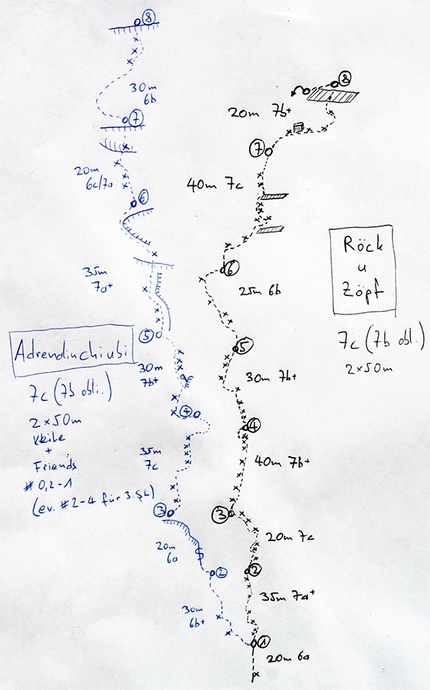 8
30m
6b
7
20m
6c/7a
6
35m
7a+
5
30m
7b+
4
35m
7c
3
20m
6a
2
30m
6b+
Adrendinchiubi
7c (7b obl.)
2x50m
Keile
+
Friends
#0,2-1
(ev. #2-4 für 3. SL)
8
20m 7b+
7
40m 7c
6
25m 6b
5
30m 7b+
4
40m 7b+
3
20m 7c
2
35m 7a+
1
20m 6a
Röck
u
Zöpf
7c (7b obl.)
2x50m